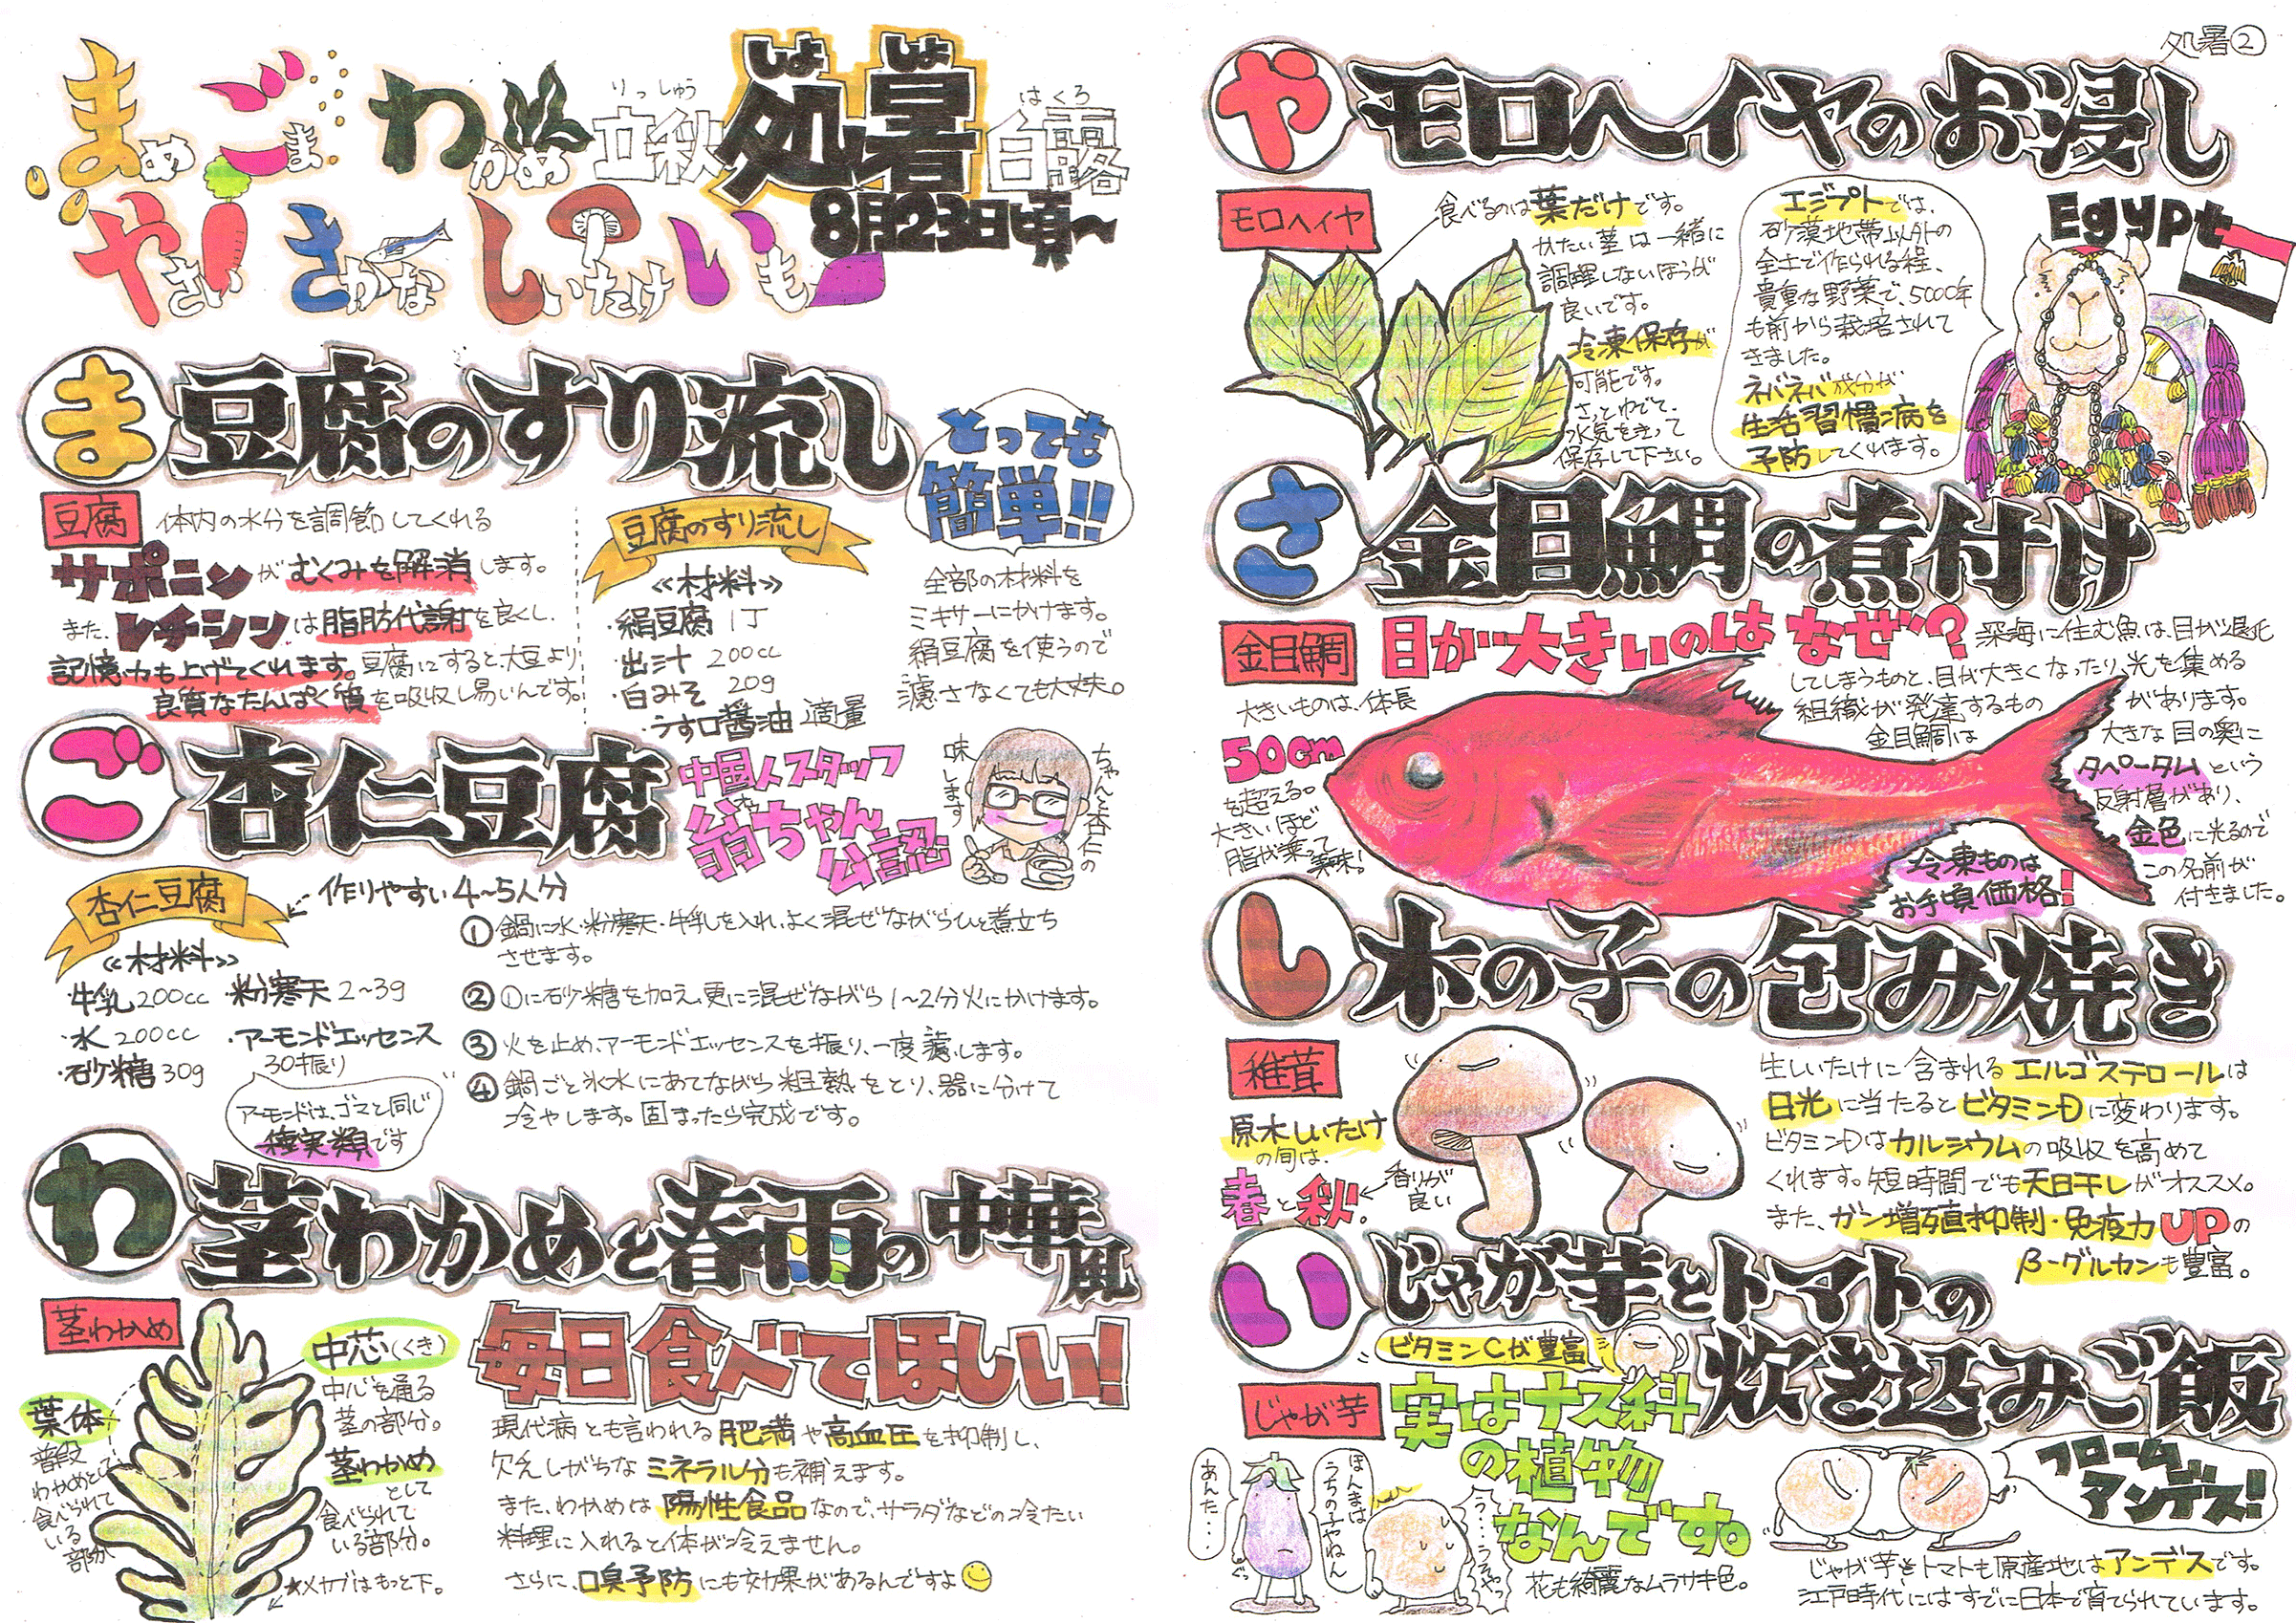 まめ ごま わかめ
やさい さかな しいたけ いも
りっしゅう
立秋
しょしょ
処暑
はくろ
白露
8月23日頃〜
ま 豆腐のすり流し
とっても
簡単!!
豆腐
体内の水分を調節してくれる
サポニンがむくみを解消します。
また、レチシンは脂肪代謝を良くし、
記憶力も上げてくれます。豆腐にすると、大豆より
良質なたんぱく質を吸収し易いんです。
豆腐のすり流し
≪材料≫
・絹豆腐 1丁
・出汁 200cc
・白みそ 20g
・うす口醤油 適量
全部の材料を
ミキサーにかけます。
絹豆腐を使うので
濾さなくても大丈夫。
ご 杏仁豆腐
中国人スタッフ
翁ちゃん
公認
ちゃんと杏仁の
味します
杏仁豆腐
作りやすい4〜5人分
≪材料≫
・牛乳 200cc ・粉寒天 2〜3g
・水 200cc ・アーモンドエッセンス
30振り
・砂糖 30g
アーモンドは、ゴマと同じ
種実類です
① 鍋に水・粉寒天・牛乳を入れ、よく混ぜながらひと煮立ち
させます。
② ①に砂糖を加え、更に混ぜながら1〜2分火にかけます。
③ 火を止め、アーモンドエッセンスを振り、一度濾します。
④ 鍋ごと氷水にあてながら粗熱をとり、器に分けて
冷やします。固まったら完成です。
わ 茎わかめと春雨の中華風
茎わかめ
葉体
普段
わかめとして
食べられて
いる部分
中芯(くき)
中心を通る
茎の部分。
茎わかめ
として
食べられて
いる部分。
★メカブはもっと下。
毎日食べてほしい!
現代病とも言われる肥満や高血圧を抑制し、
欠乏しがちなミネラル分も補えます。
また、わかめは陽性食品なので、サラダなどの冷たい
料理に入れると体が冷えません。
さらに、口臭予防にも効果があるんですよ
処暑②
や モロヘイヤのお浸し
モロヘイヤ
食べるのは葉だけです。
かたい茎は一緒に
調理しないほうが
良いです。
冷凍保存が
可能です。
さっとゆでて、
水気をきって
保存して下さい。
エジプトでは、
砂漠地帯以外の
全土で作られる程、
貴重な野菜で、5000年
も前から栽培されて
きました。
ネバネバ成分が
生活習慣病を
予防してくれます。
Egypt
さ 金目鯛の煮付け
金目鯛
目が大きいのはなぜ?
大きいものは、体長
50cm
を超える。
大きいほど
脂が乗って
美味!
深海に住む魚は、目が退化
してしまうものと、目が大きくなったり、光を集める
組織が発達するもの
があります。
金目鯛は
大きな目の奥に
タペータムという
反射層があり、
金色に光るので
この名前が
付きました。
冷凍ものは
お手頃価格!
し 木の子の包み焼き
椎茸
原木しいたけ
の旬は、
春と秋。
香りが
良い
生しいたけに含まれるエルゴステロールは
日光に当たるとビタミンDに変わります。
ビタミンDはカルシウムの吸収を高めて
くれます。短時間でも天日干しがオススメ。
また、ガン増殖抑制・免疫力UPの
β-グルカンも豊富。
い じゃが芋とトマトの
炊き込みご飯
ビタミンCが豊富
じゃが芋
実はナス科
の植物
なんです。
花も綺麗なムラサキ色。
あんた・・・
ほんまは
うちの子やねん
う・・・うそやっ
フローム
アンデス!
じゃが芋もトマトも原産地はアンデスです。
江戸時代にはすでに日本で育てられています。